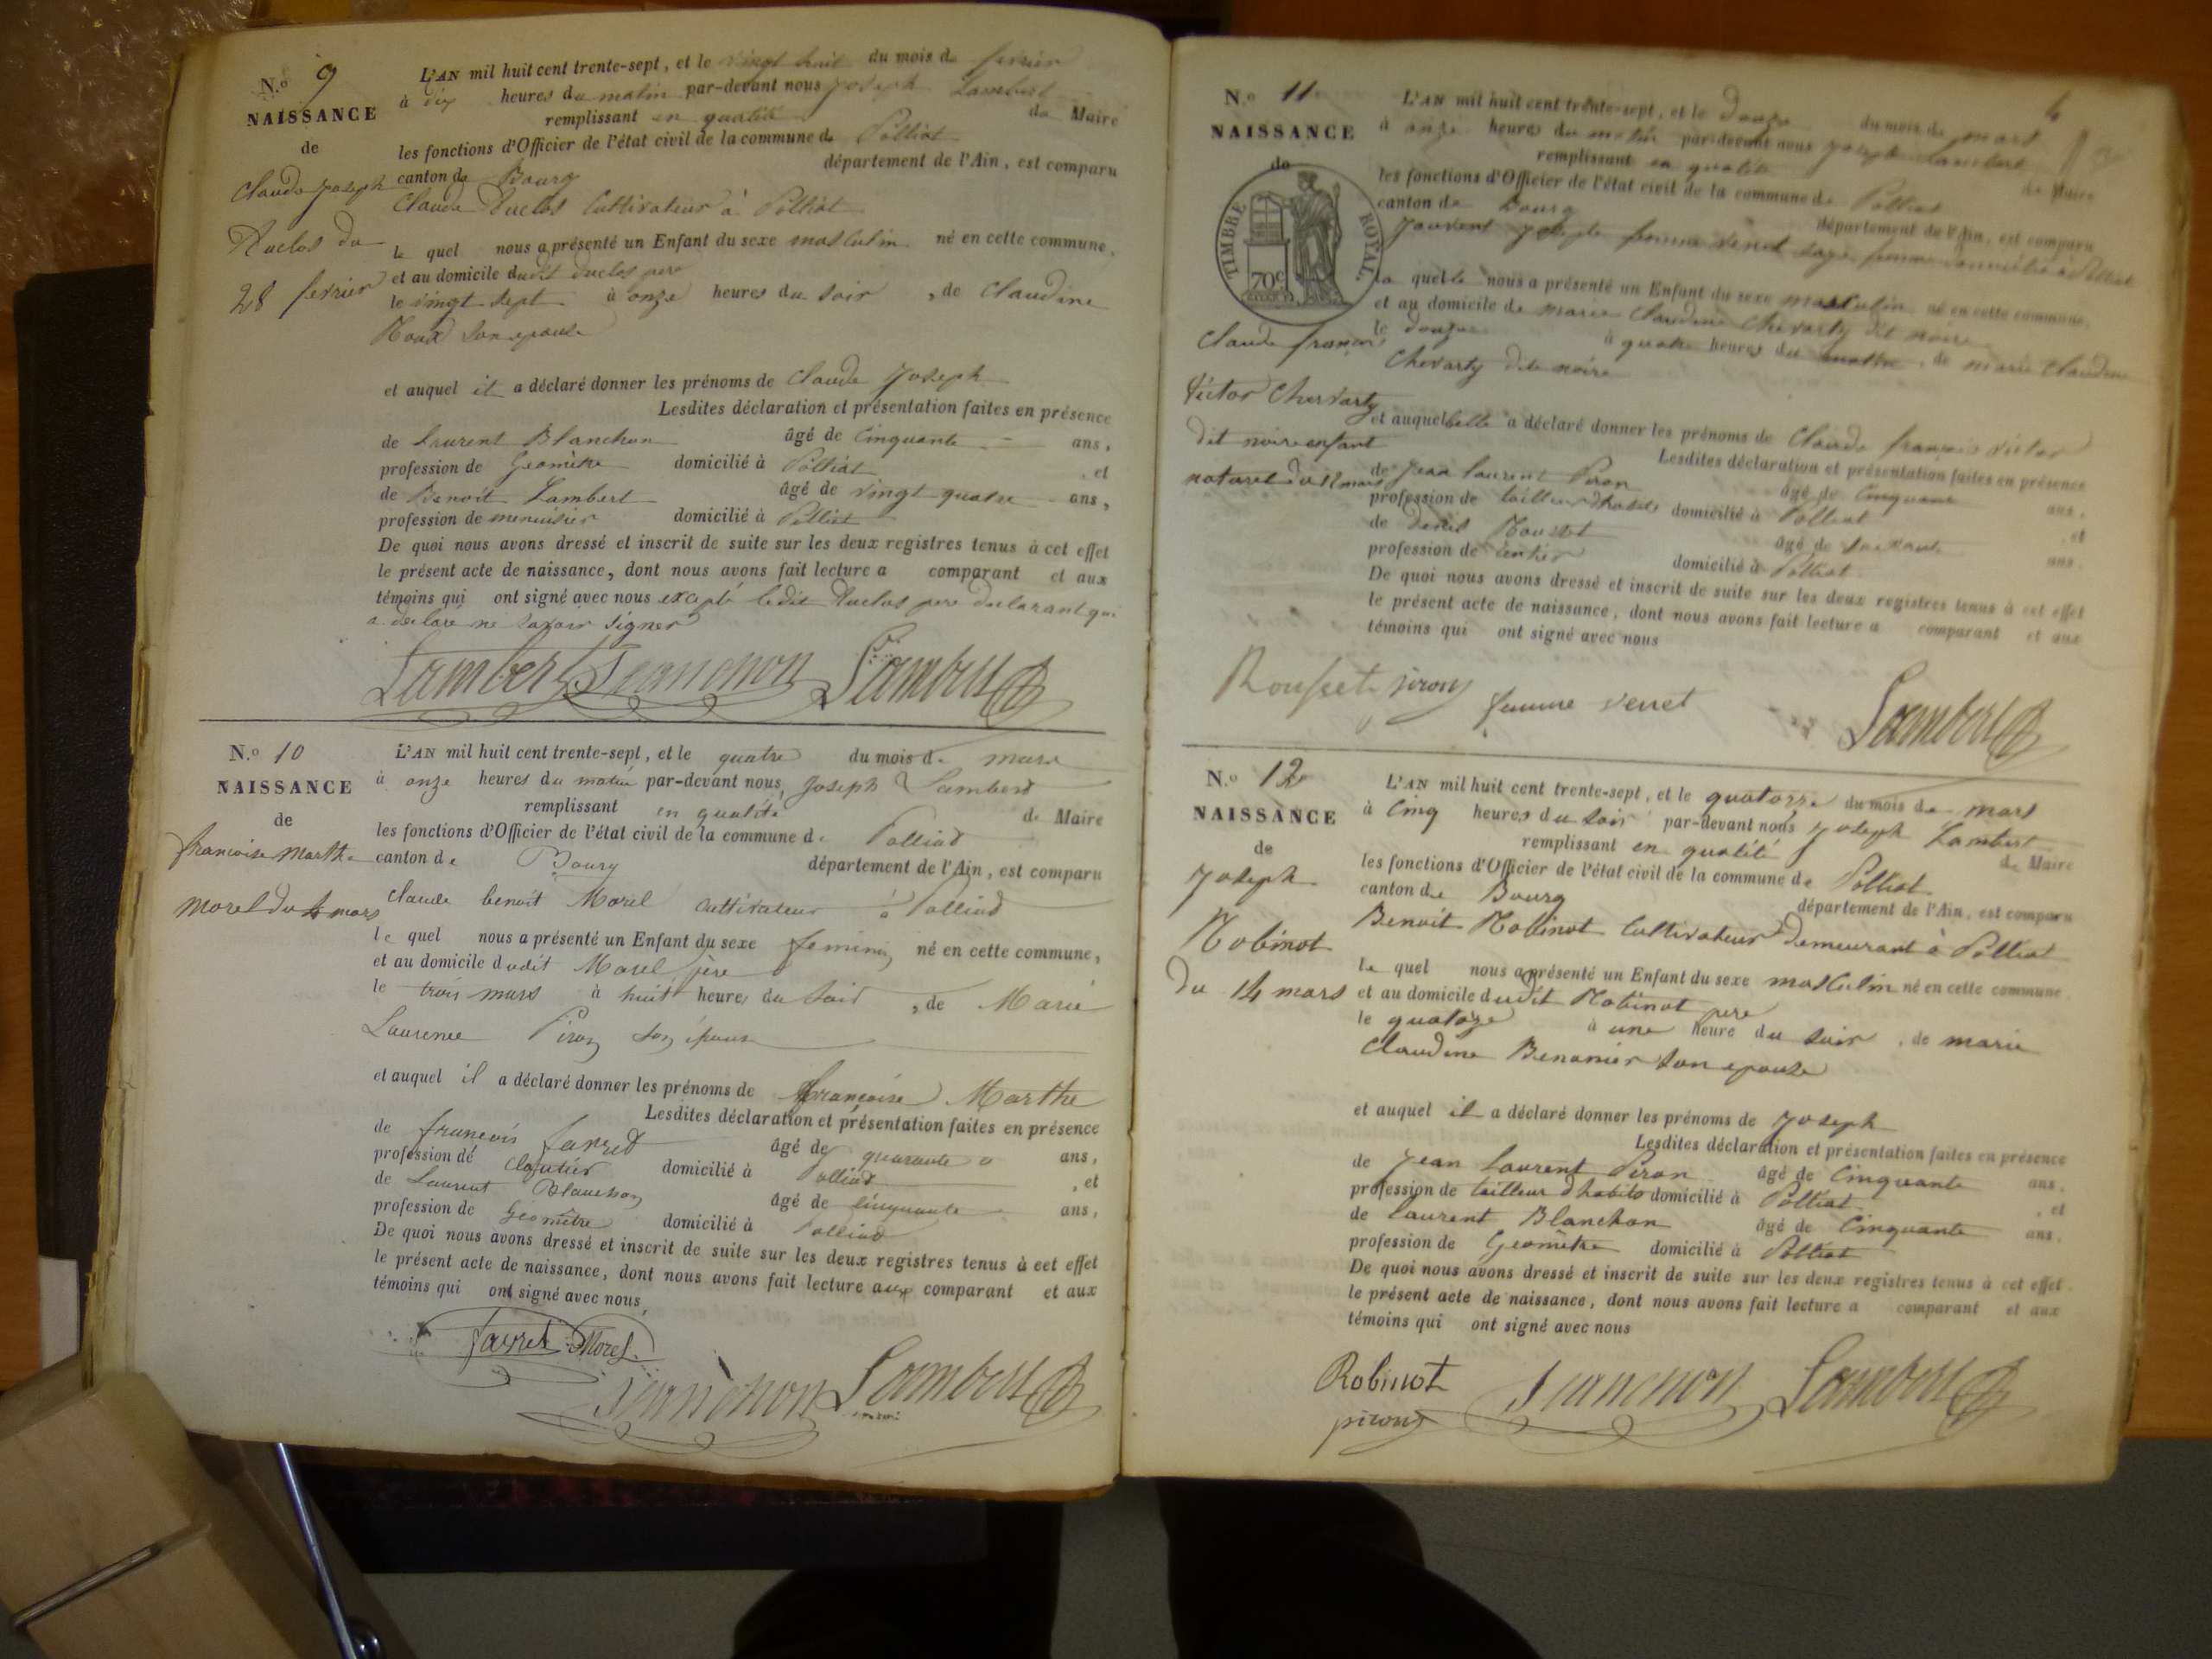 N.o 9
NAISSANCE
de
Claude Joseph
Duclos du
28 fevrier
L'AN mil huit cent trente-sept, et le vingt huit du mois de fevrier
à dix heures du matin par-devant nous Joseph Lambert
remplissant en qualité de Maire
les fonctions d'Officier de l'état civil de la commune de Polliat
canton de Bourg département de l'Ain, est comparu
Claude Duclos Cultivateur à Polliat
le quel nous a présenté un Enfant du sexe masculin né en cette commune,
et au domicile dudit duclos pere
le vingt sept à onze heures du soir, de Claudine
Roux son epouse
et auquel il a déclaré donner les prénoms de Claude Joseph
Lesdites déclaration et présentation faites en présence
de Laurent Blanchon âgé de Cinquante ans,
profession de Geomètre domicilié à Polliat, et
de Benoit Lambert âgé de vingt quatre ans,
profession de menuisier domicilié à Polliat
De quoi nous avons dressé et inscrit de suite sur les deux registres tenus à cet effet
le présent acte de naissance, dont nous avons fait lecture a comparant et aux
témoins qui ont signé avec nous excepté ledit Duclos pere declarant qui
a declaré ne savoir signer
Lambert Blanchon Lambert
N.o 10
NAISSANCE
de
francoise Marthe
morel du 4 mars
L'AN mil huit cent trente-sept, et le quatre du mois de mars
à onze heures du matin par-devant nous Joseph Lambert
remplissant en qualité de Maire
les fonctions d'Officier de l'état civil de la commune de Polliad
canton de Bourg département de l'Ain, est comparu
Claude benoit Morel cultivateur à Polliad
le quel nous a présenté un Enfant du sexe feminin né en cette commune,
et au domicile dudit Morel père
le trois mars à huit heures du soir, de Marie
Laurence Piron son épouse
et auquel il a déclaré donner les prénoms de françoise Marthe
Lesdites déclaration et présentation faites en présence
de francois favret âgé de quarante ans,
profession de cloutier domicilié à Polliad, et
de Laurent Blanchon âgé de cinquante ans,
profession de Géomètre domicilié à Polliad
De quoi nous avons dressé et inscrit de suite sur les deux registres tenus à cet effet
le présent acte de naissance, dont nous avons fait lecture aux comparant et aux
témoins qui ont signé avec nous,
favret Morel
Blanchon Lambert
N.o 11
NAISSANCE
de
TIMBRE ROYAL
70c
Claude françois
Victor Chevarty
dit noire enfant
naturel du 12 mars
L'AN mil huit cent trente-sept, et le douze du mois de mars
à onze heures du matin par-devant nous Joseph Lambert
remplissant en qualité de Maire
les fonctions d'Officier de l'état civil de la commune de Polliat
canton de Bourg département de l'Ain, est comparu
femme venet sage femme à Polliat
la quelle nous a présenté un Enfant du sexe masculin né en cette commune,
et au domicile de marie Claudine Chevarty dit noire
le douze à quatre heures du matin, de marie Claudine
Chevarty dite noire
et auquel elle a déclaré donner les prénoms de Claude françois victor
Lesdites déclaration et présentation faites en présence
de Jean laurent Piron âgé de Cinquante ans,
profession de tailleur d'habits domicilié à Polliat, et
de denis Rousset âgé de soixante ans.
profession de rentier domicilié à Polliat
De quoi nous avons dressé et inscrit de suite sur les deux registres tenus à cet effet
le présent acte de naissance, dont nous avons fait lecture a comparant et aux
témoins qui ont signé avec nous
Rousset piron femme venet Lambert
N.o 12
NAISSANCE
de
Joseph
Robinot
du 14 mars
L'AN mil huit cent trente-sept, et le quatorze du mois de mars
à Cinq heures du soir par-devant nous Joseph Lambert
remplissant en qualité de Maire
les fonctions d'Officier de l'état civil de la commune de Polliat
canton de Bourg département de l'Ain, est comparu
Benoit Robinot Cultivateur demeurant à Polliat
le quel nous a présenté un Enfant du sexe masculin né en cette commune
et au domicile dudit Robinot pere
le quatoze à une heure du soir, de marie
Claudine Benonier son epouse
et auquel il a déclaré donner les prénoms de Joseph
Lesdites déclaration et présentation faites en présence
de Jean laurent Piron âgé de Cinquante ans.
profession de tailleur d'habits domicilié à Polliat, et
de laurent Blanchon âgé de Cinquante ans.
profession de Geomètre domicilié à Polliat
De quoi nous avons dressé et inscrit de suite sur les deux registres tenus à cet effet
le présent acte de naissance, dont nous avons fait lecture a comparant et aux
témoins qui ont signé avec nous
Robinot Blanchon Lambert
piron